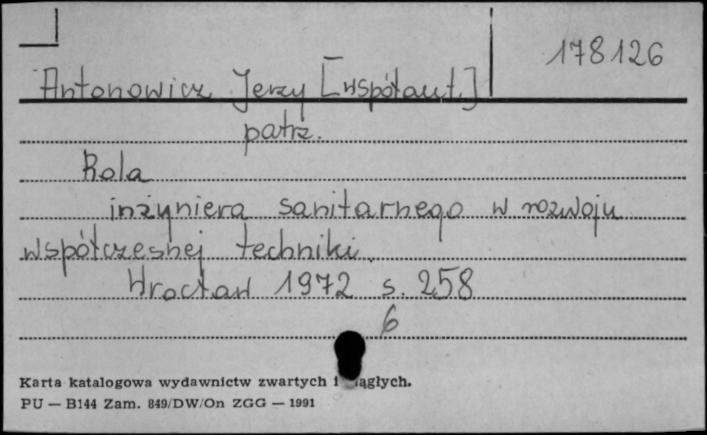 178126
Antonowicz Jerzy [współaut.]
patrz.
Rola
inżyniera sanitarnego w rozwoju
współczesnej techniki.
Wrocław 1972 s. 258
6
Karta katalogowa wydawnictw zwartych i ciągłych.
PU — B144 Zam. 849/DW/On ZGG — 1991